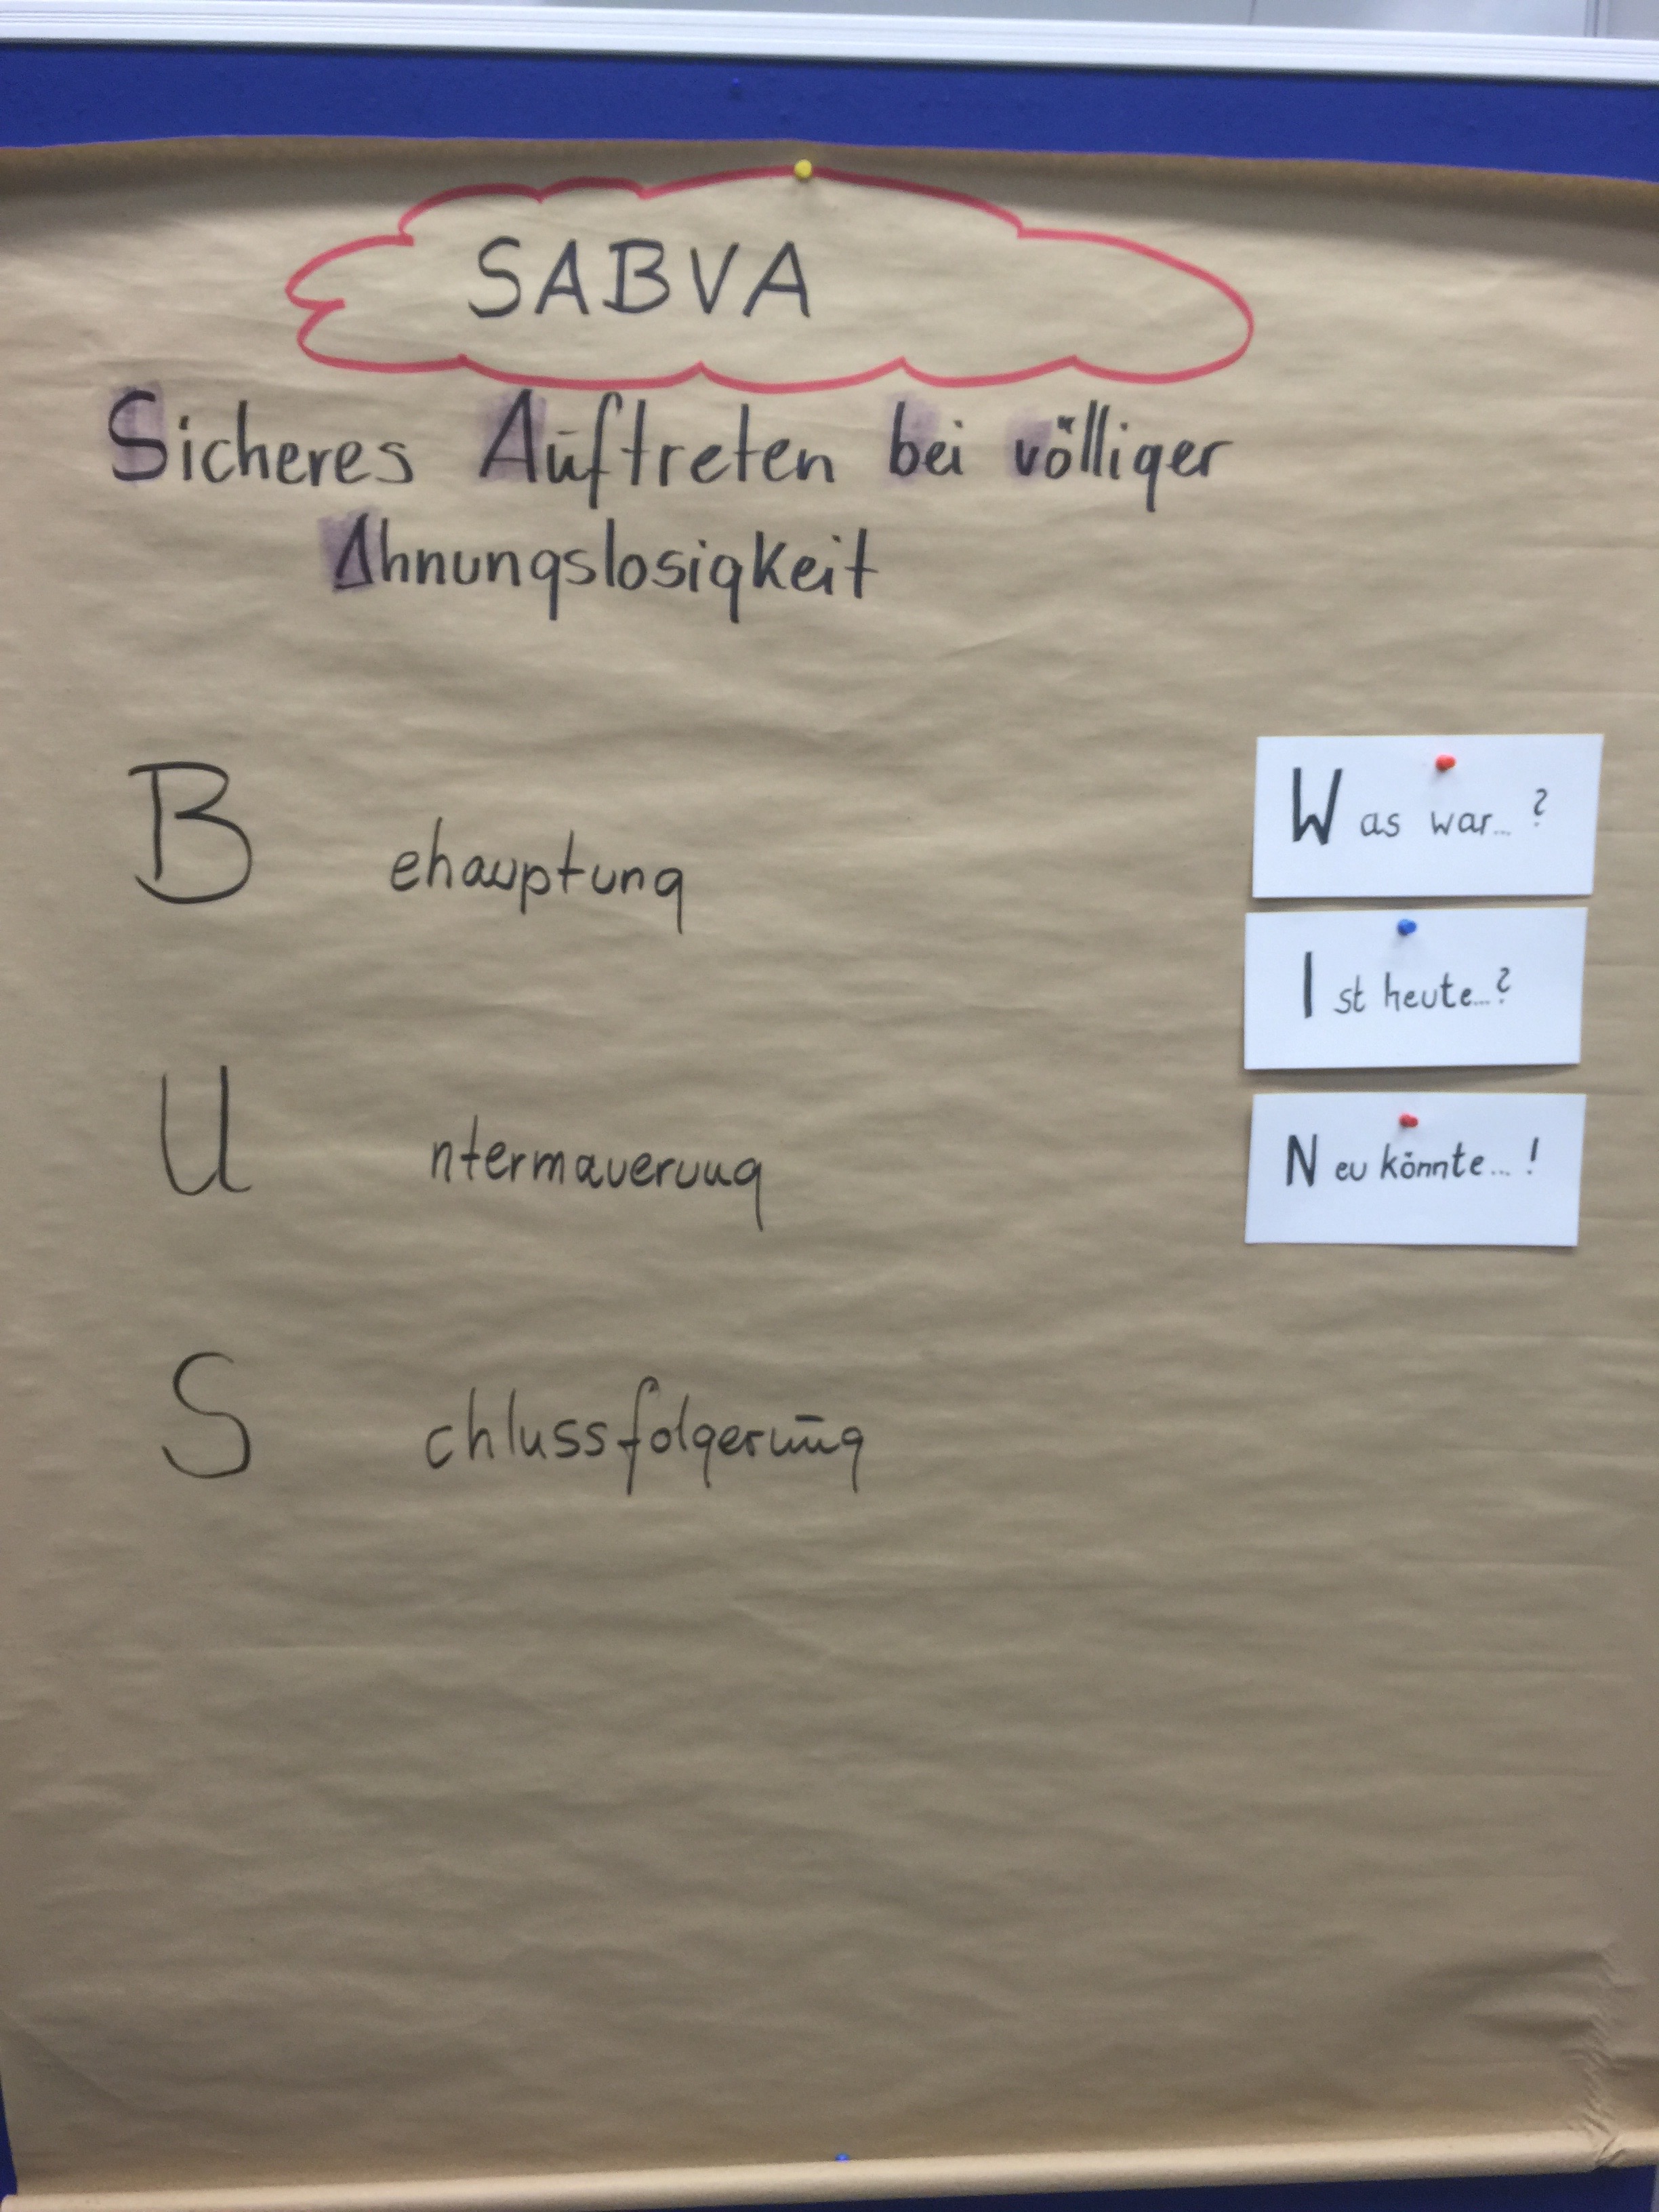 SABVA
Sicheres Auftreten bei völliger
Ahnungslosigkeit
Behauptung
Untermauerung
Schlussfolgerung
Was war...?
Ist heute...?
Neu könnte...!